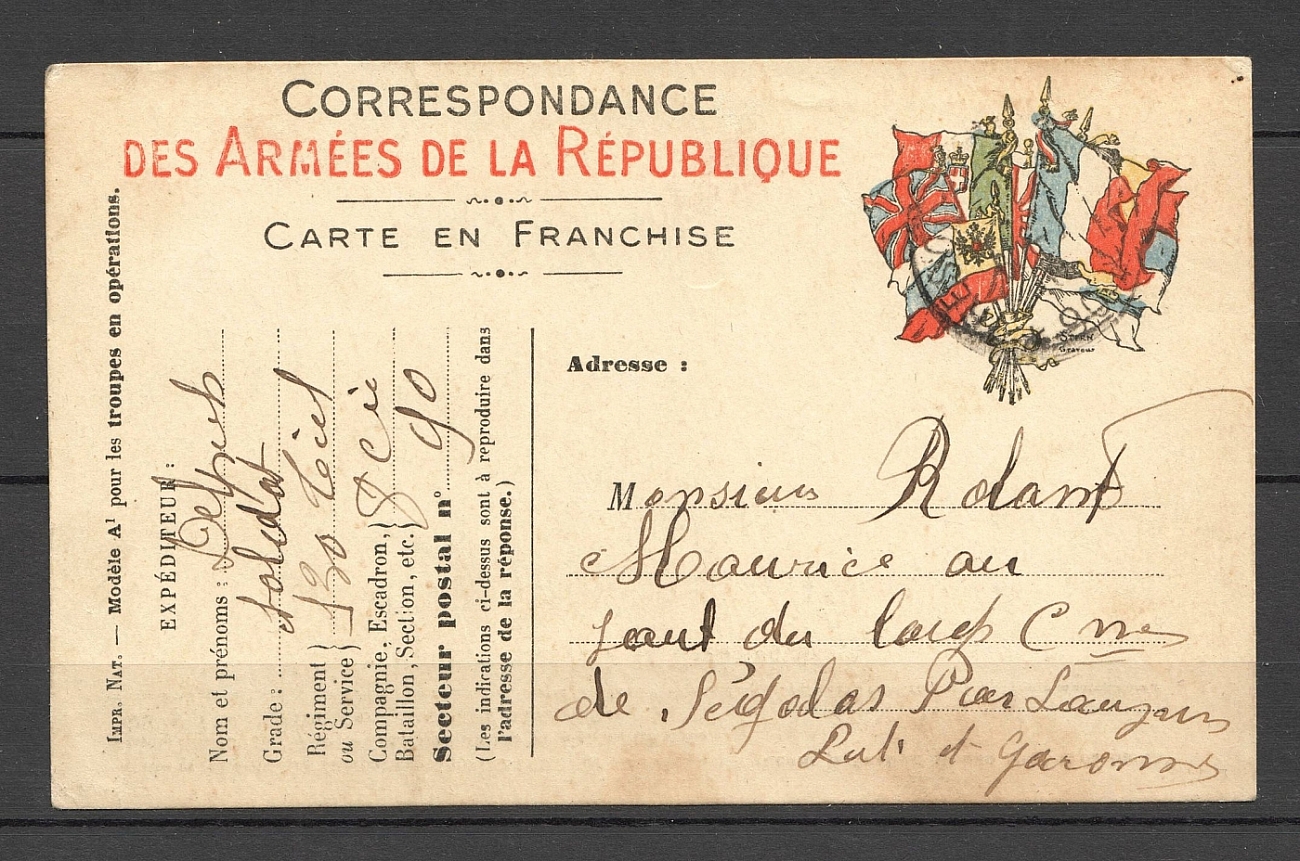 CORRESPONDANCE
DES ARMÉES DE LA RÉPUBLIQUE
CARTE EN FRANCHISE
IMPR. NAT. — Modèle A¹ pour les troupes en opérations.
EXPÉDITEUR :
Nom et prénoms : Delpech
Grade : soldat
Régiment ou Service } 130 Ttiel
Compagnie, Escadron, Bataillon, Section, etc. } 8 Cie
Secteur postal n° 90
(Les indications ci-dessus sont à reproduire dans
l'adresse de la réponse.)
STERN
Graveur
Adresse :
Monsieur Rolant
Maurice au
saut du loup Cne
de Ségalas Par Lauzun
Lot et Garonne